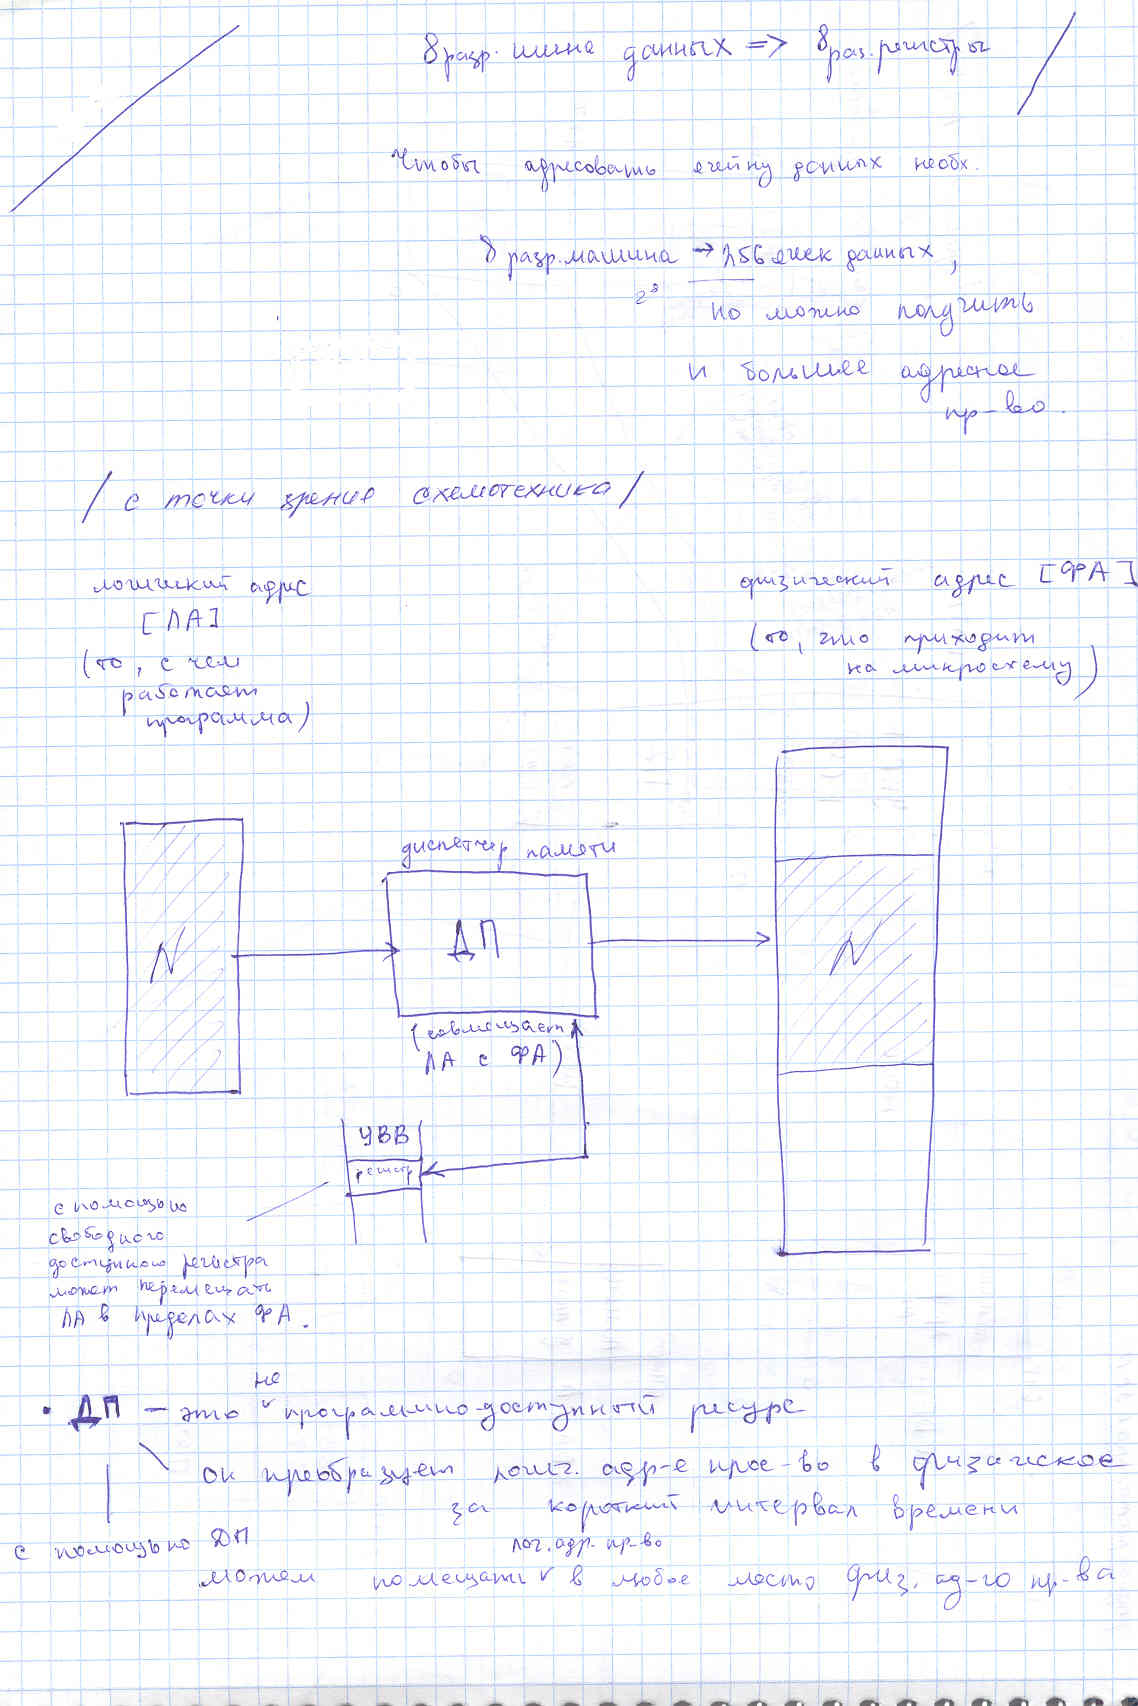 8 разр. шина данных => 8 раз. регистры
Чтобы адресовать ячейку данных необх.
8 разр. машина → 256 ячеек данных,
2⁸
но можно получить
и большее адресное
пр-во.
/ с точки зрение схемотехника /
логический адрес
[ЛА]
(то, с чем
работает
программа)
физический адрес [ФА]
(то, что приходит
на микросхему)
диспетчер памяти
N
ДП
N
(совмещает
ЛА с ФА)
УВВ
регистр
с помощью
свободного
доступного регистра
может перемещать
ЛА в пределах ФА.
не
• ДП — это ᵛ программно-доступный ресурс
он преобразует логич. адр-е прос-во в физическое
за короткий интервал времени
с помощью ДП
лог. адр. пр-во
можем помещать ᵛ в любое место физ. ад-го пр-ва